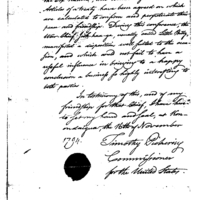 Articles of a treaty have been agreed on which
are calculated to confirm and perpetuate their
peace and friendship. During this conference, the
War chief
manifested a disposition well suited to the occa-
sion, and which did not fail to have a
useful influence in bringing to a happy
conclusion a business of highly interesting to
both parties.
In testimony of this, and of my
friendship for this Chief, I have here-
to set my hand and seal, at
the of November
1794.
Timothy Pickering
Commissioner
for the United States.